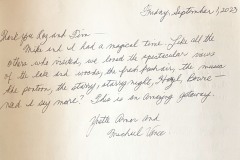 Friday, September 1, 2023
Thank you Lay and Don -
Mike and I had a magical time. Like all the
others who visited, we loved the spectacular views
of the lake and woods, the fresh fresh air, the
the starry, starry night, Hazel, Rowie -
need I say more? This is an amazing getaway.
Yvette and
Michael